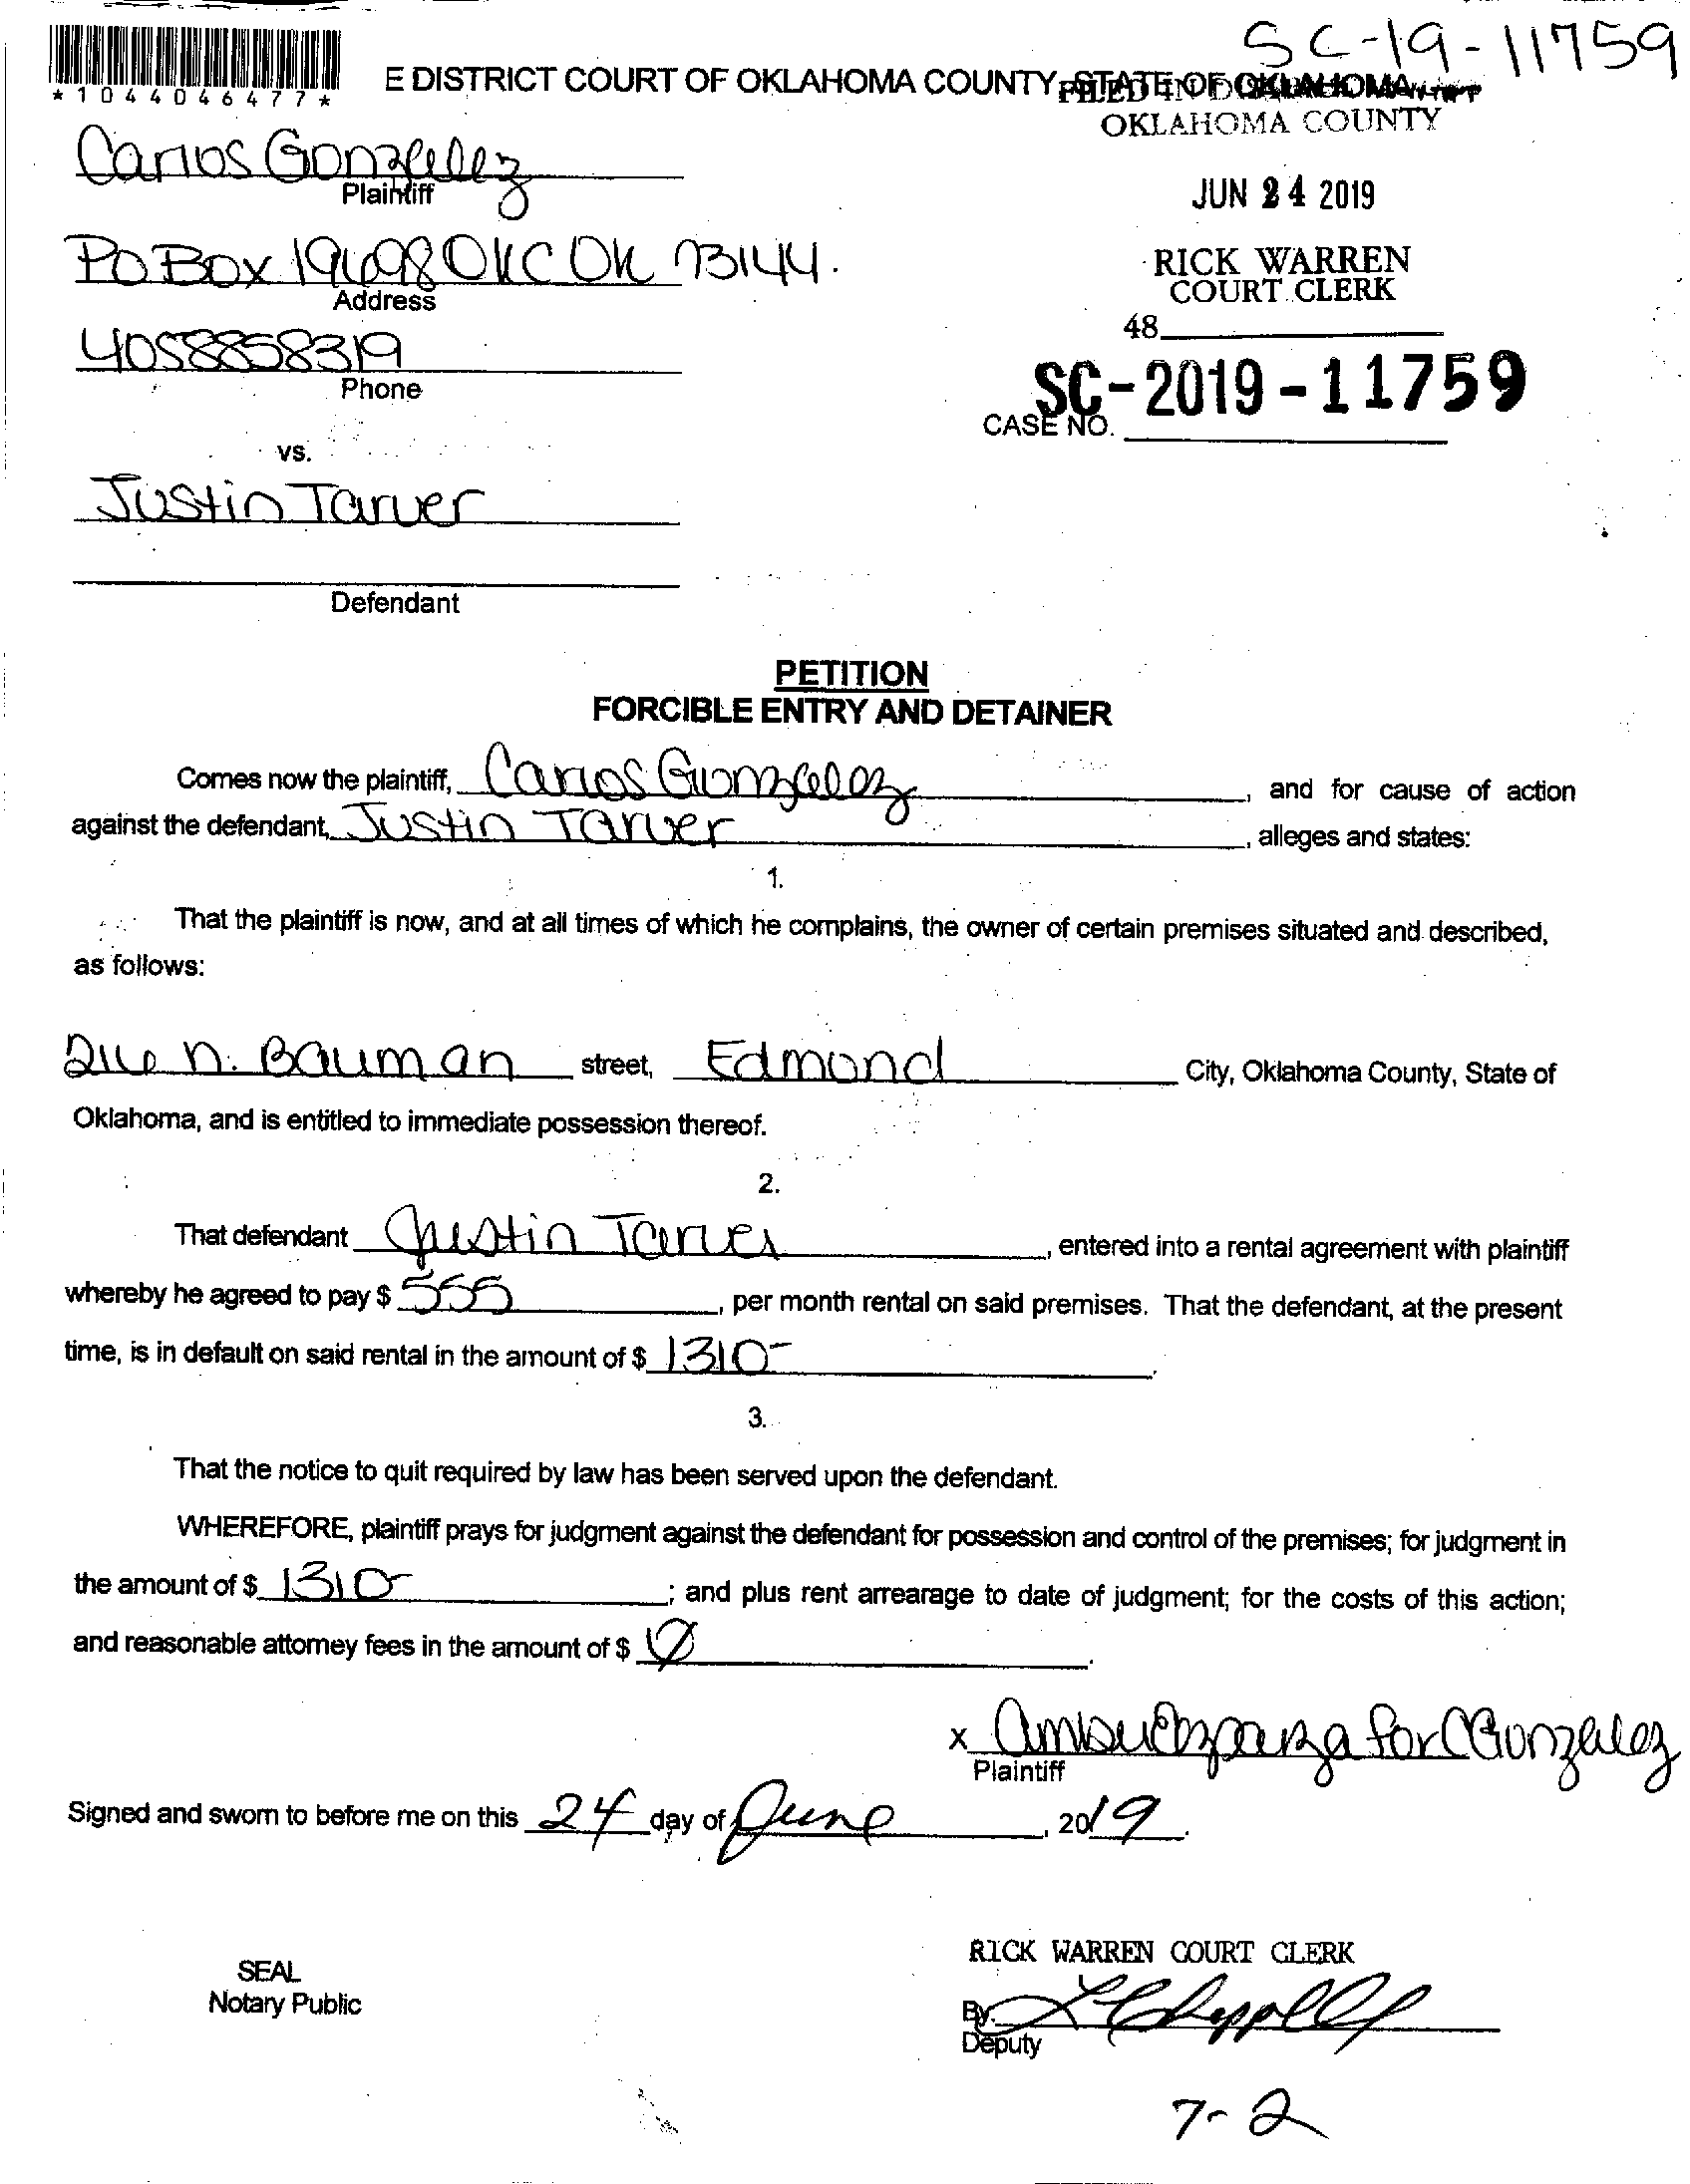 SC-19-11759
*1044046477*
E DISTRICT COURT OF OKLAHOMA COUNTY, STATE OF OKLAHOMA
FILED IN DISTRICT COURT
OKLAHOMA COUNTY
Carlos Gonzalez
Plaintiff
JUN 24 2019
PO Box 19698 OKC OK 73144.
Address
RICK WARREN
COURT CLERK
48
4058858319
Phone
SC-2019-11759
CASE NO.
vs.
Justin Tarver
Defendant
PETITION
FORCIBLE ENTRY AND DETAINER
Comes now the plaintiff, Carlos Gonzalez, and for cause of action
against the defendant, Justin Tarver, alleges and states:
1.
That the plaintiff is now, and at all times of which he complains, the owner of certain premises situated and described,
as follows:
216 N. Bauman street, Edmond City, Oklahoma County, State of
Oklahoma, and is entitled to immediate possession thereof.
2.
That defendant Justin Tarver, entered into a rental agreement with plaintiff
whereby he agreed to pay $ 555, per month rental on said premises. That the defendant, at the present
time, is in default on said rental in the amount of $ 1310-.
3.
That the notice to quit required by law has been served upon the defendant.
WHEREFORE, plaintiff prays for judgment against the defendant for possession and control of the premises; for judgment in
the amount of $ 1310-; and plus rent arrearage to date of judgment; for the costs of this action;
and reasonable attorney fees in the amount of $ 0.
x for C Gonzalez
Plaintiff
Signed and sworn to before me on this 24 day of June, 2019.
RICK WARREN COURT CLERK
SEAL
Notary Public
By:
Deputy
7-2